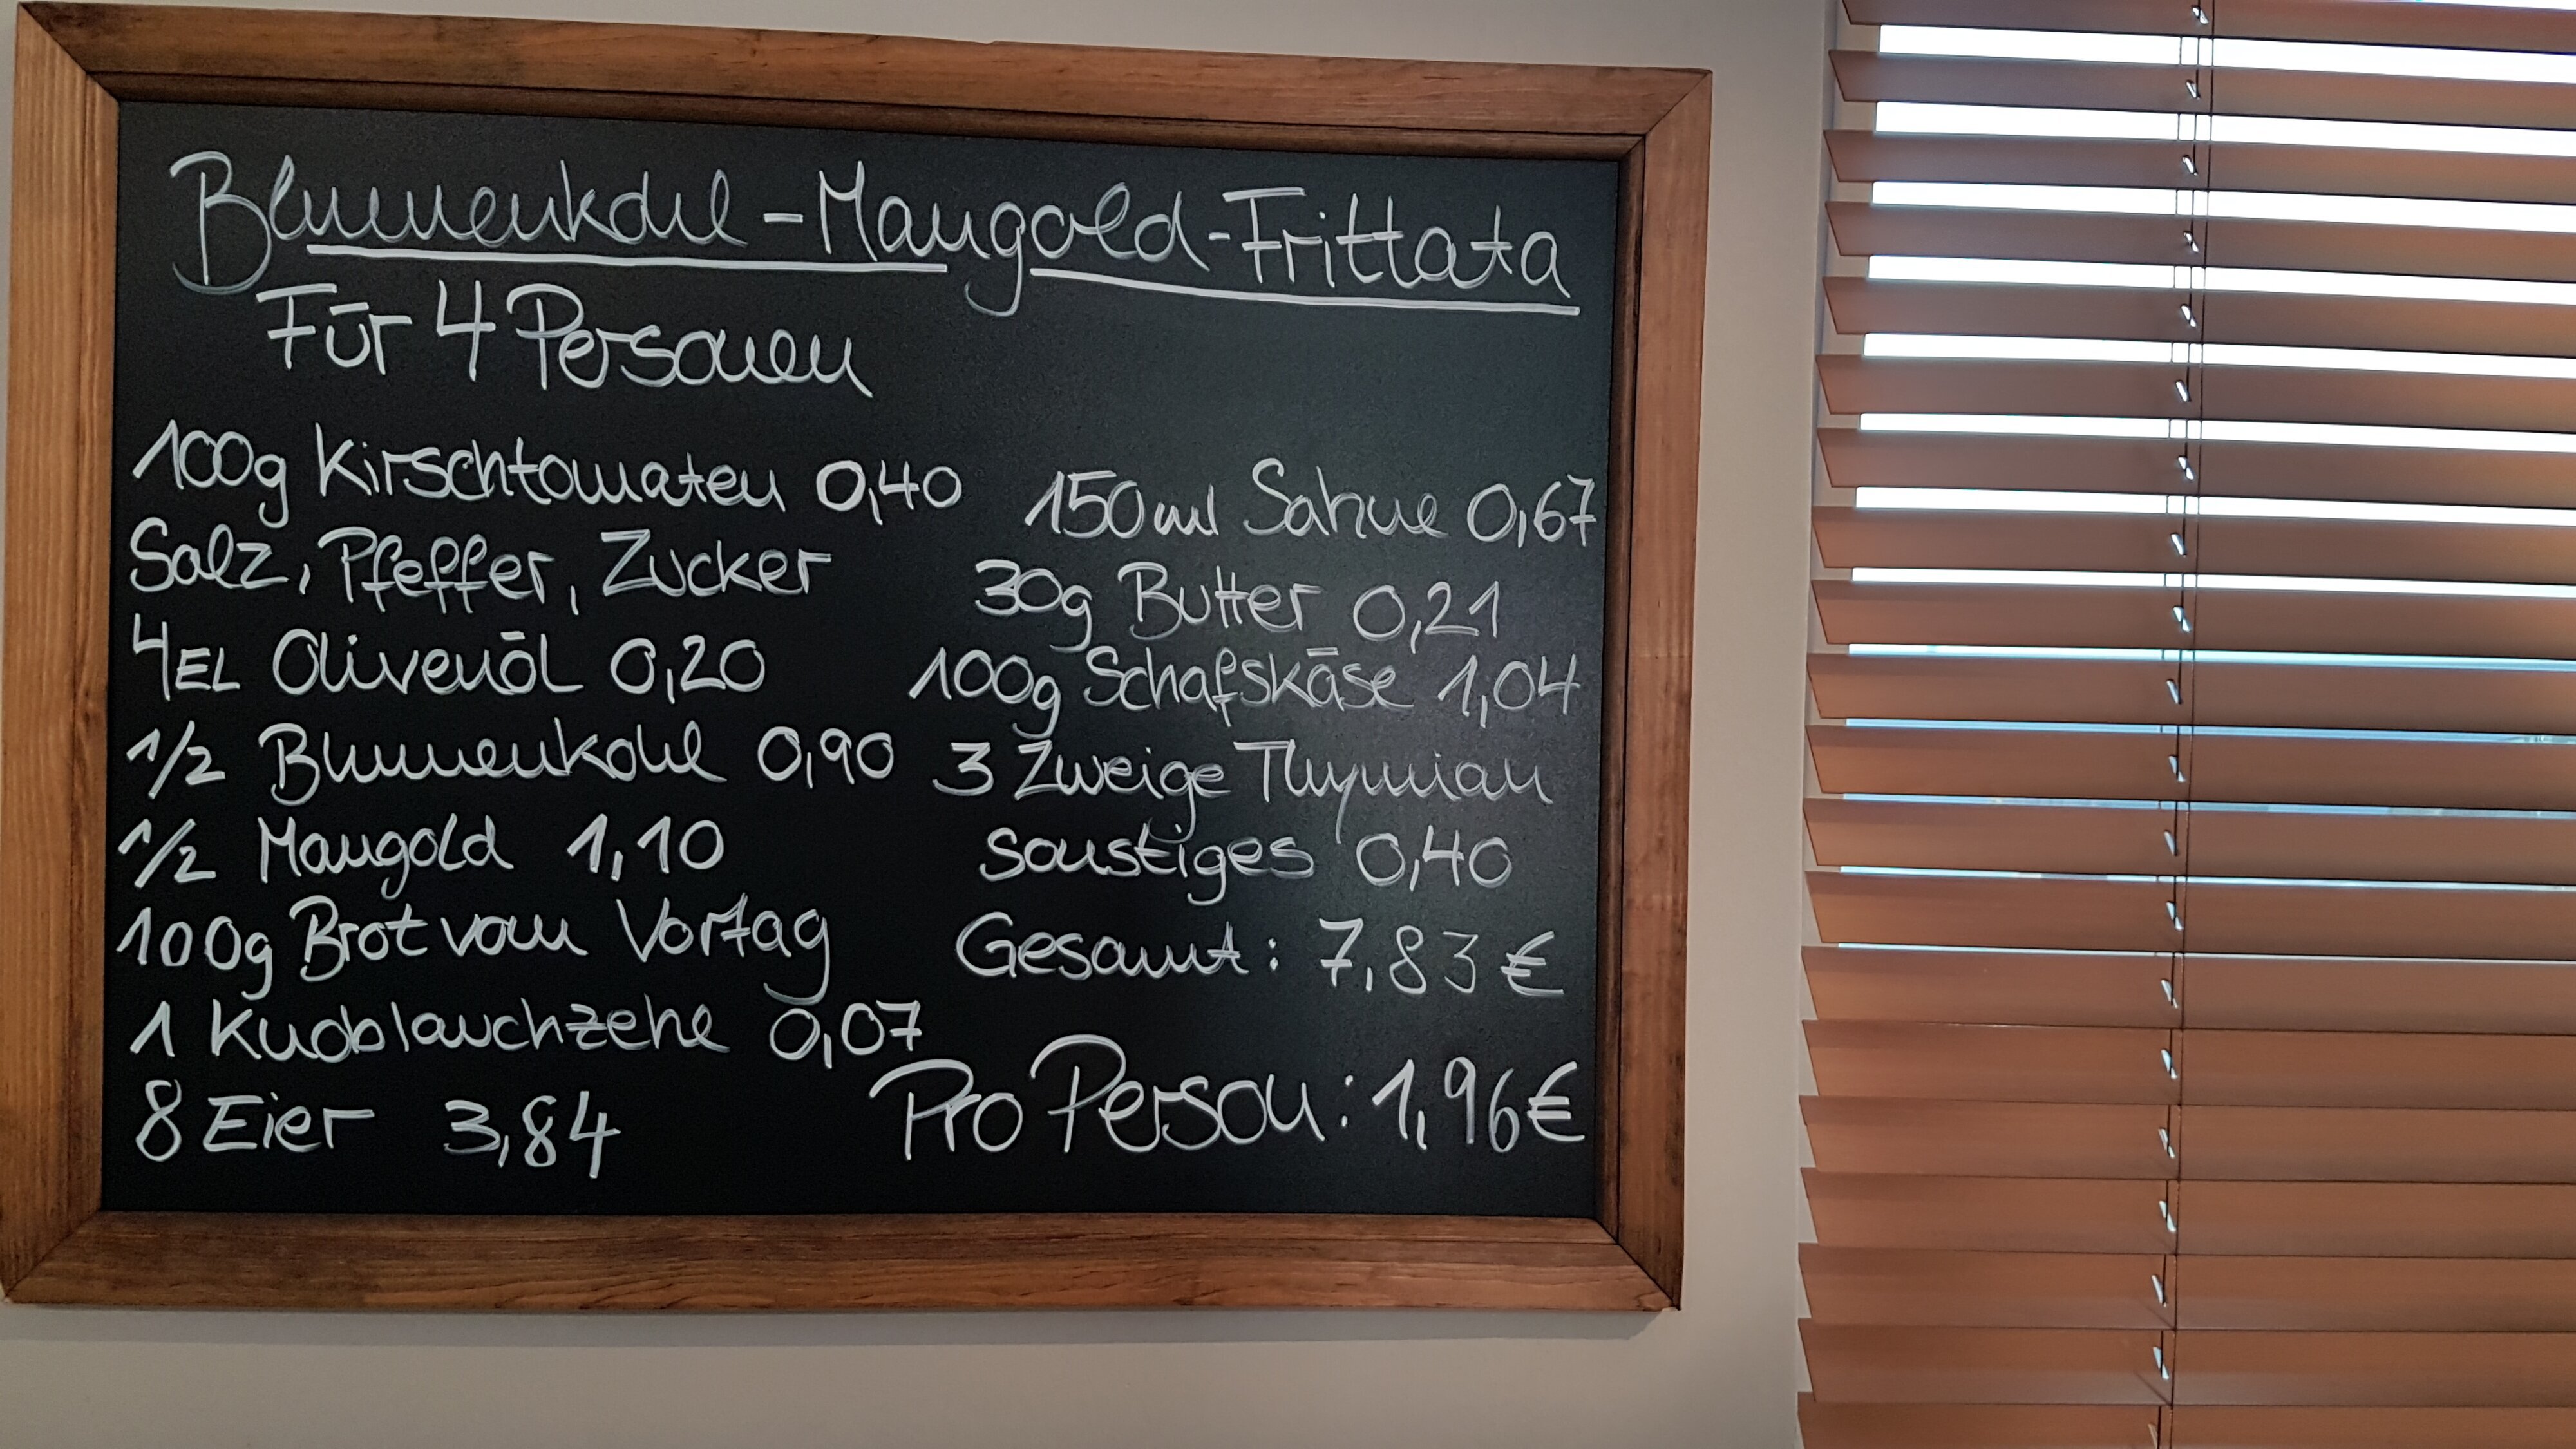 Blumenkohl-Mangold-Frittata
Für 4 Personen
100g Kirschtomaten 0,40
Salz, Pfeffer, Zucker
4EL Olivenöl 0,20
1/2 Blumenkohl 0,90
1/2 Mangold 1,10
100g Brot vom Vortag
1 Knoblauchzehe 0,07
8 Eier 3,84
150ml Sahne 0,67
30g Butter 0,21
100g Schafskäse 1,04
3 Zweige Thymian
sonstiges 0,40
Gesamt: 7,83€
Pro Person: 1,96€